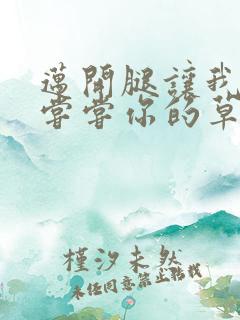 邁開腿讓我
嘗嘗你的草
槿汐未然
未任同意禁止轉載